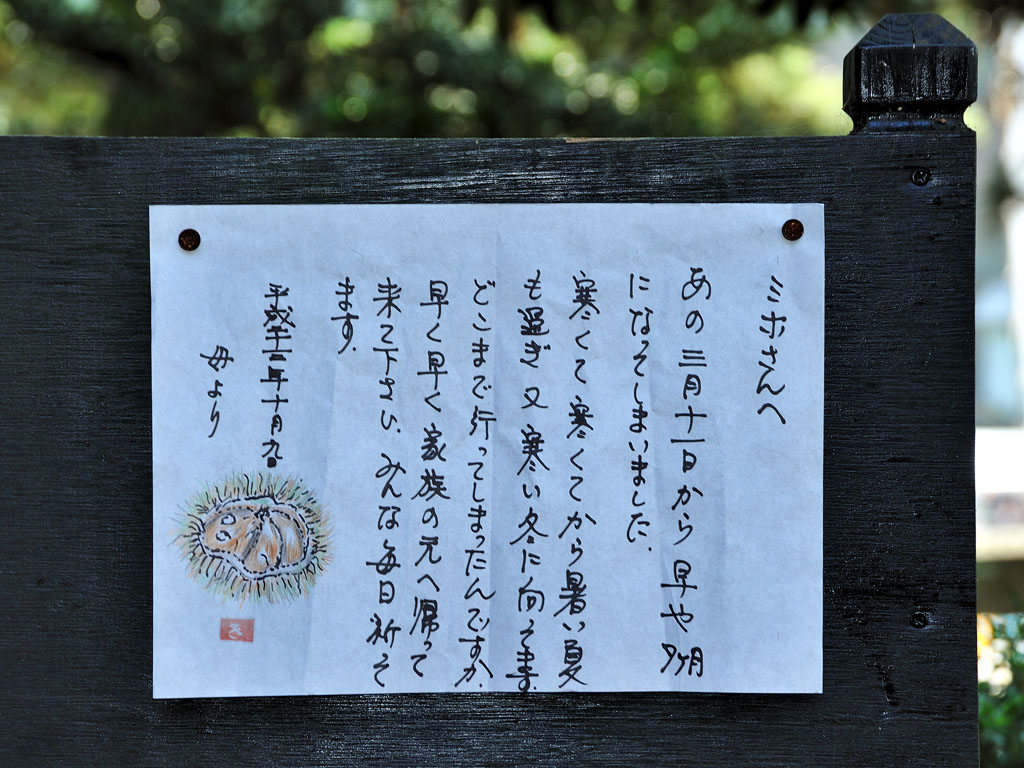 ミホさんへ
あの三月十一日から早や7ヶ月
になってしまいました.
寒くて寒くてから暑い夏
も過ぎ又寒い冬に向ってます.
どこまで行ってしまったんですか.
早く早く家族の元へ帰って
来て下さい.みんな毎日祈って
ます.
平成二十三年十月九日
母より